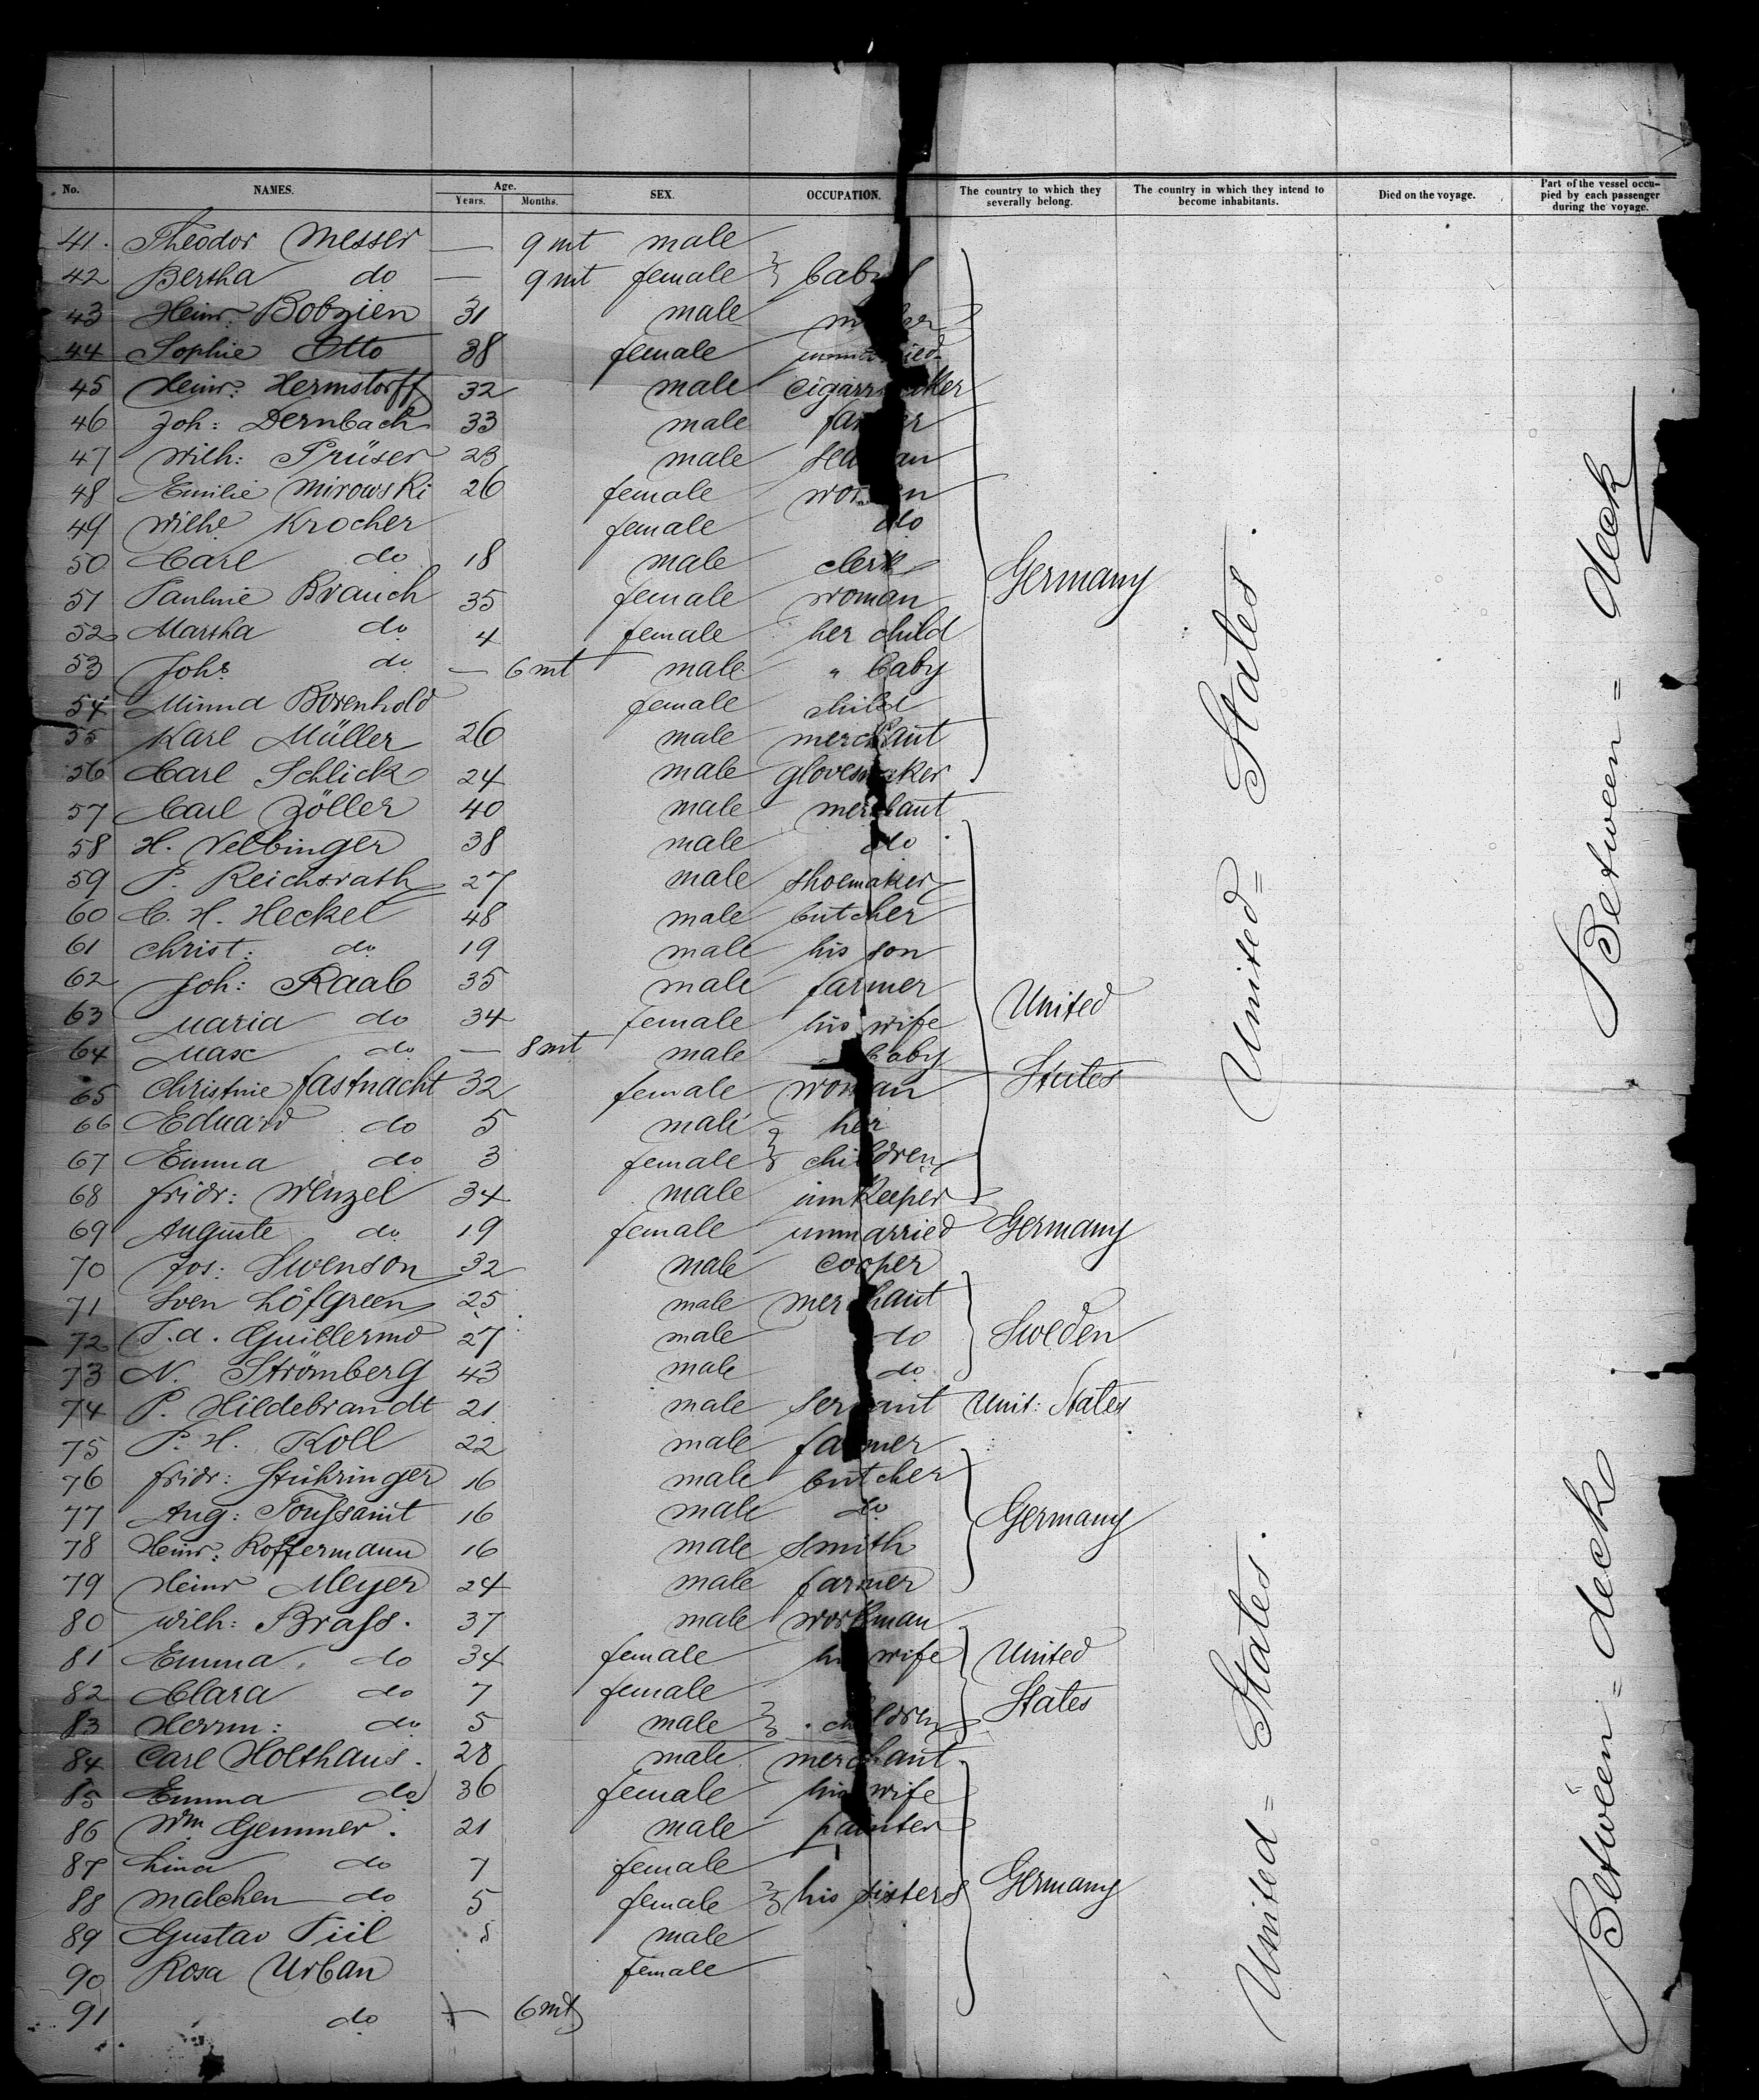 No. NAMES. Age. Years. Months. SEX. OCCUPATION. The country to which they severally belong. The country in which they intend to become inhabitants. Died on the voyage. Part of the vessel occu-pied by each passenger during the voyage.
41. Theodor Messer — 9 mt male
42 Bertha do — 9 mt female } baby
43 Heinr: Bobzien 31 male
44 Sophie Otto 38 female unmarried
45 Heinr: Hermstorff 32 male cigarrmaker
46 Joh: Dernbach 33 male farmer
47 Wilh: Prüser 23 male seaman
48 Emilie Mirowski 26 female woman
49 Wilhe Krocher female do
50 Carl do 18 male clerk
51 Pauline Brauch 35 female woman Germany
52 Martha do 4 female her child
53 Johs do — 6 mt male " baby
54 Minna Borenhold female child
55 Karl Müller 26 male merchant
56 Carl Schlick 24 male glovesmaker
57 Carl Zöller 40 male merchant
58 H. Velbinger 38 male do
59 P. Reichsrath 27 male shoemaker
60 C. H. Heckel 48 male butcher
61 Christ: do 19 male his son
62 Joh: Raab 35 male farmer
63 Maria do 34 female his wife United
64 Max do — 8 mt male baby
65 Christine Fastnacht 32 female woman States
66 Eduard do 5 male } her
67 Emma do 3 female } children
68 Fridr: Wenzel 34 male innkeeper
69 Auguste do 19 female unmarried Germany
70 Jos: Swenson 32 male cooper
71 Sven Löfgreen 25 male merchant
72 T. a. Guillermo 27 male do Sweden
73 N. Strömberg 43 male do
74 P. Hildebrandt 21 male servant Unit: States
75 P. H. Koll 22 male farmer
76 Fridr: Stühringer 16 male butcher
77 Aug: Toussaint 16 male do Germany
78 Heinr: Koffermann 16 male smith
79 Heinr Meyer 24 male farmer
80 Wilh: Brass. 37 male workman
81 Emma do 34 female his wife United
82 Clara do 7 female States
83 Herrm: do 5 male } children
84 Carl Holthaus. 28 male merchant
85 Emma do 36 female his wife
86 Wm Gemmer. 21 male painter
87 Lina do 7 female
88 Malchen do 5 female } his sisters Germany
89 Gustav Tiil male
90 Rosa Urban female
91 do 6 mt
United = States.
United = States.
Between = deck
Between = deck